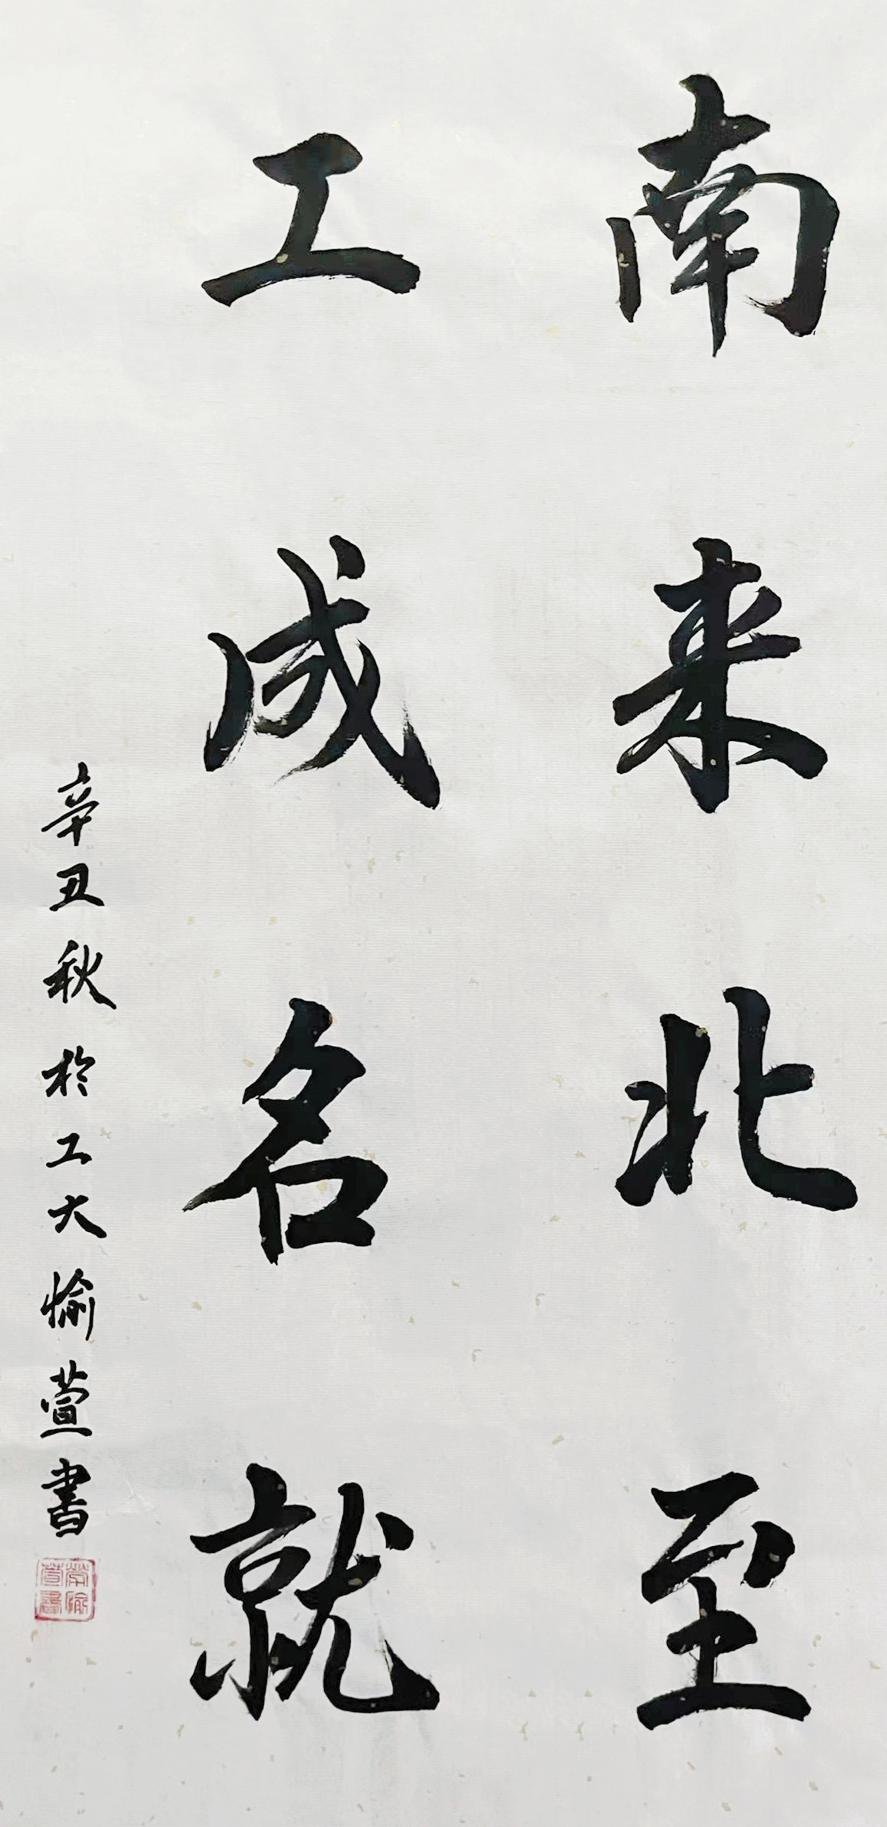 南来北至
工成名就
辛丑秋於工大愉萱書